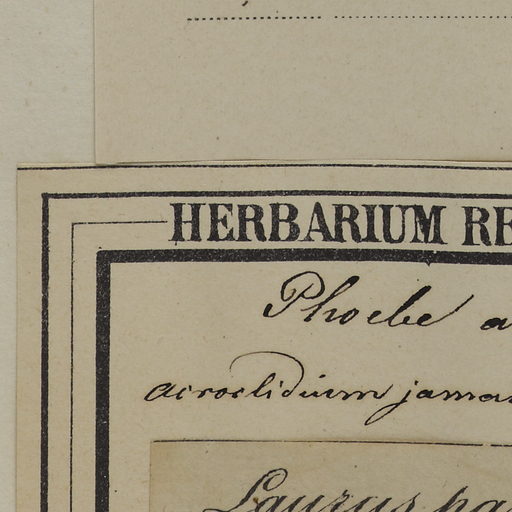 HERBARIUM RE
Phoebe a
acroclidium jama
Laurus pa